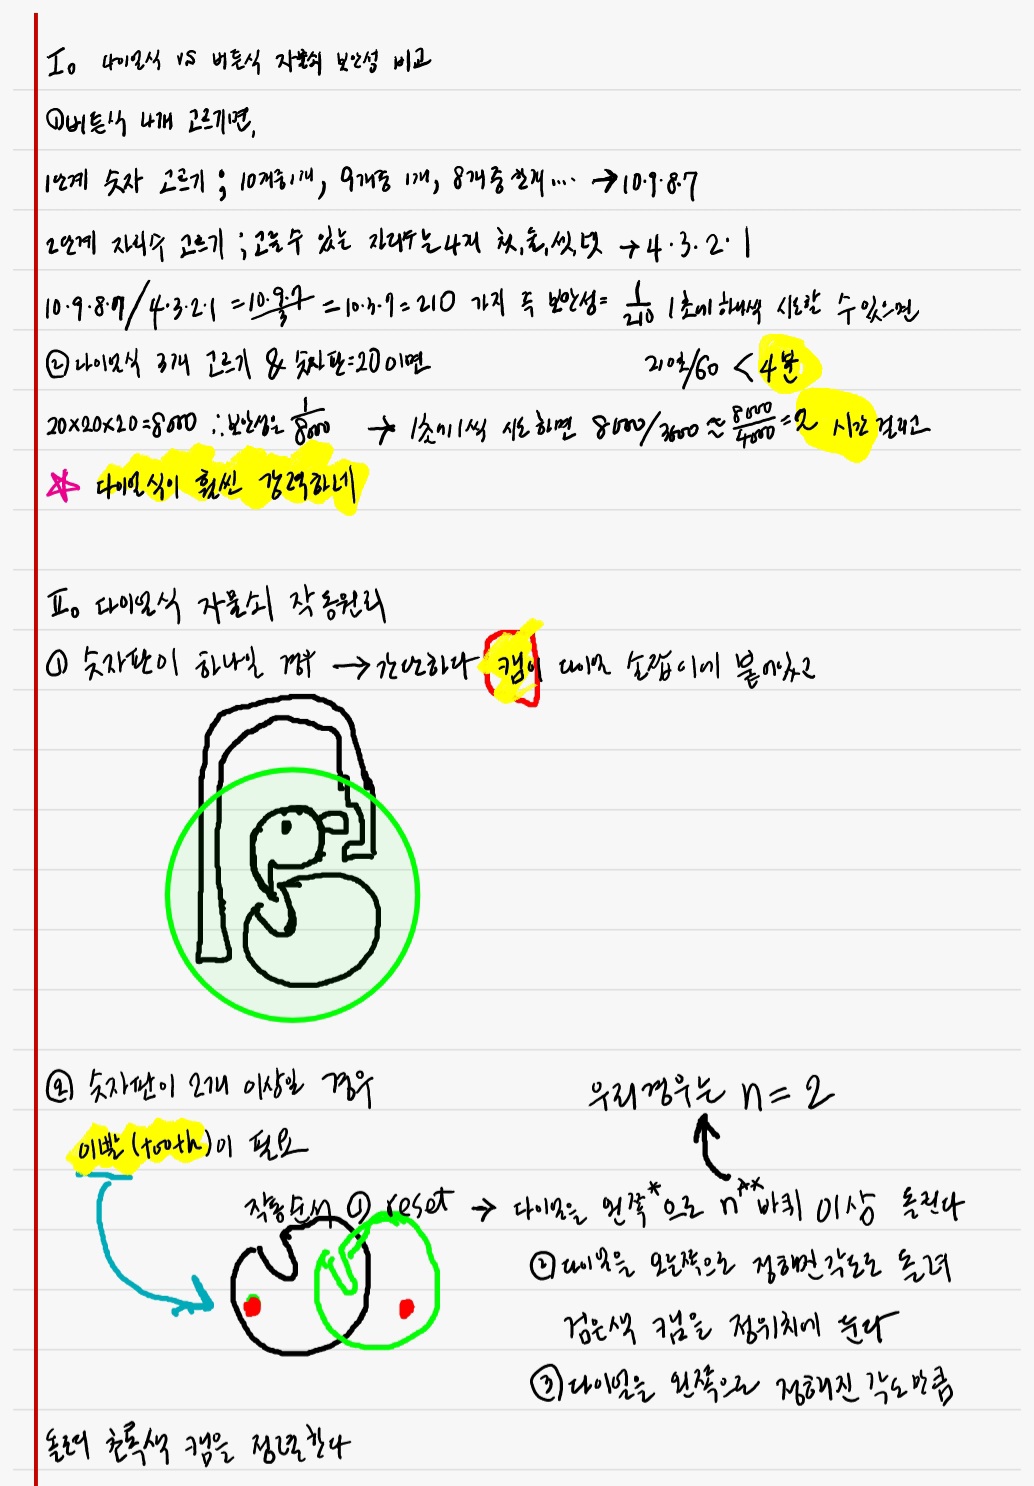 I. 다이얼식 vs 버튼식 자물쇠 보안성 비교
① 버튼식 4개 고르기면,
1단계 숫자 고르기 ; 10개중 1개, 9개중 1개, 8개중 한개... → 10·9·8·7
2단계 자리수 고르기 ; 고를수 있는 자리수는 4개 첫,둘,셋,넷 → 4·3·2·1
10·9·8·7/4·3·2·1 = 10·9·7/3 = 10·3·7 = 210 가지 즉 보안성= 1/210 1초에 하나씩 시도할 수 있으면
② 다이얼식 3개 고르기 & 숫자판=20이면 210/60 < 4분
20×20×20=8000 ∴보안성은 1/8000 → 1초에 1씩 시도하면 8000/3600 ≈ 8000/4000 = 2 시간 걸리고
☆ 다이얼식이 훨씬 강력하네
II. 다이얼식 자물쇠 작동원리
① 숫자판이 하나일 경우 → 간단하다 캠이 다이얼 손잡이에 붙어있고
② 숫자판이 2개 이상일 경우
우리경우는 n = 2
이빨(tooth)이 필요
작동순서 ① reset → 다이얼을 왼쪽*으로 n** 바퀴 이상 돌린다
② 다이얼을 오른쪽으로 정해진 각도로 돌려
검은색 캠을 정위치에 둔다
③ 다이얼을 왼쪽으로 정해진 각도만큼
돌려 초록색 캠을 정렬한다